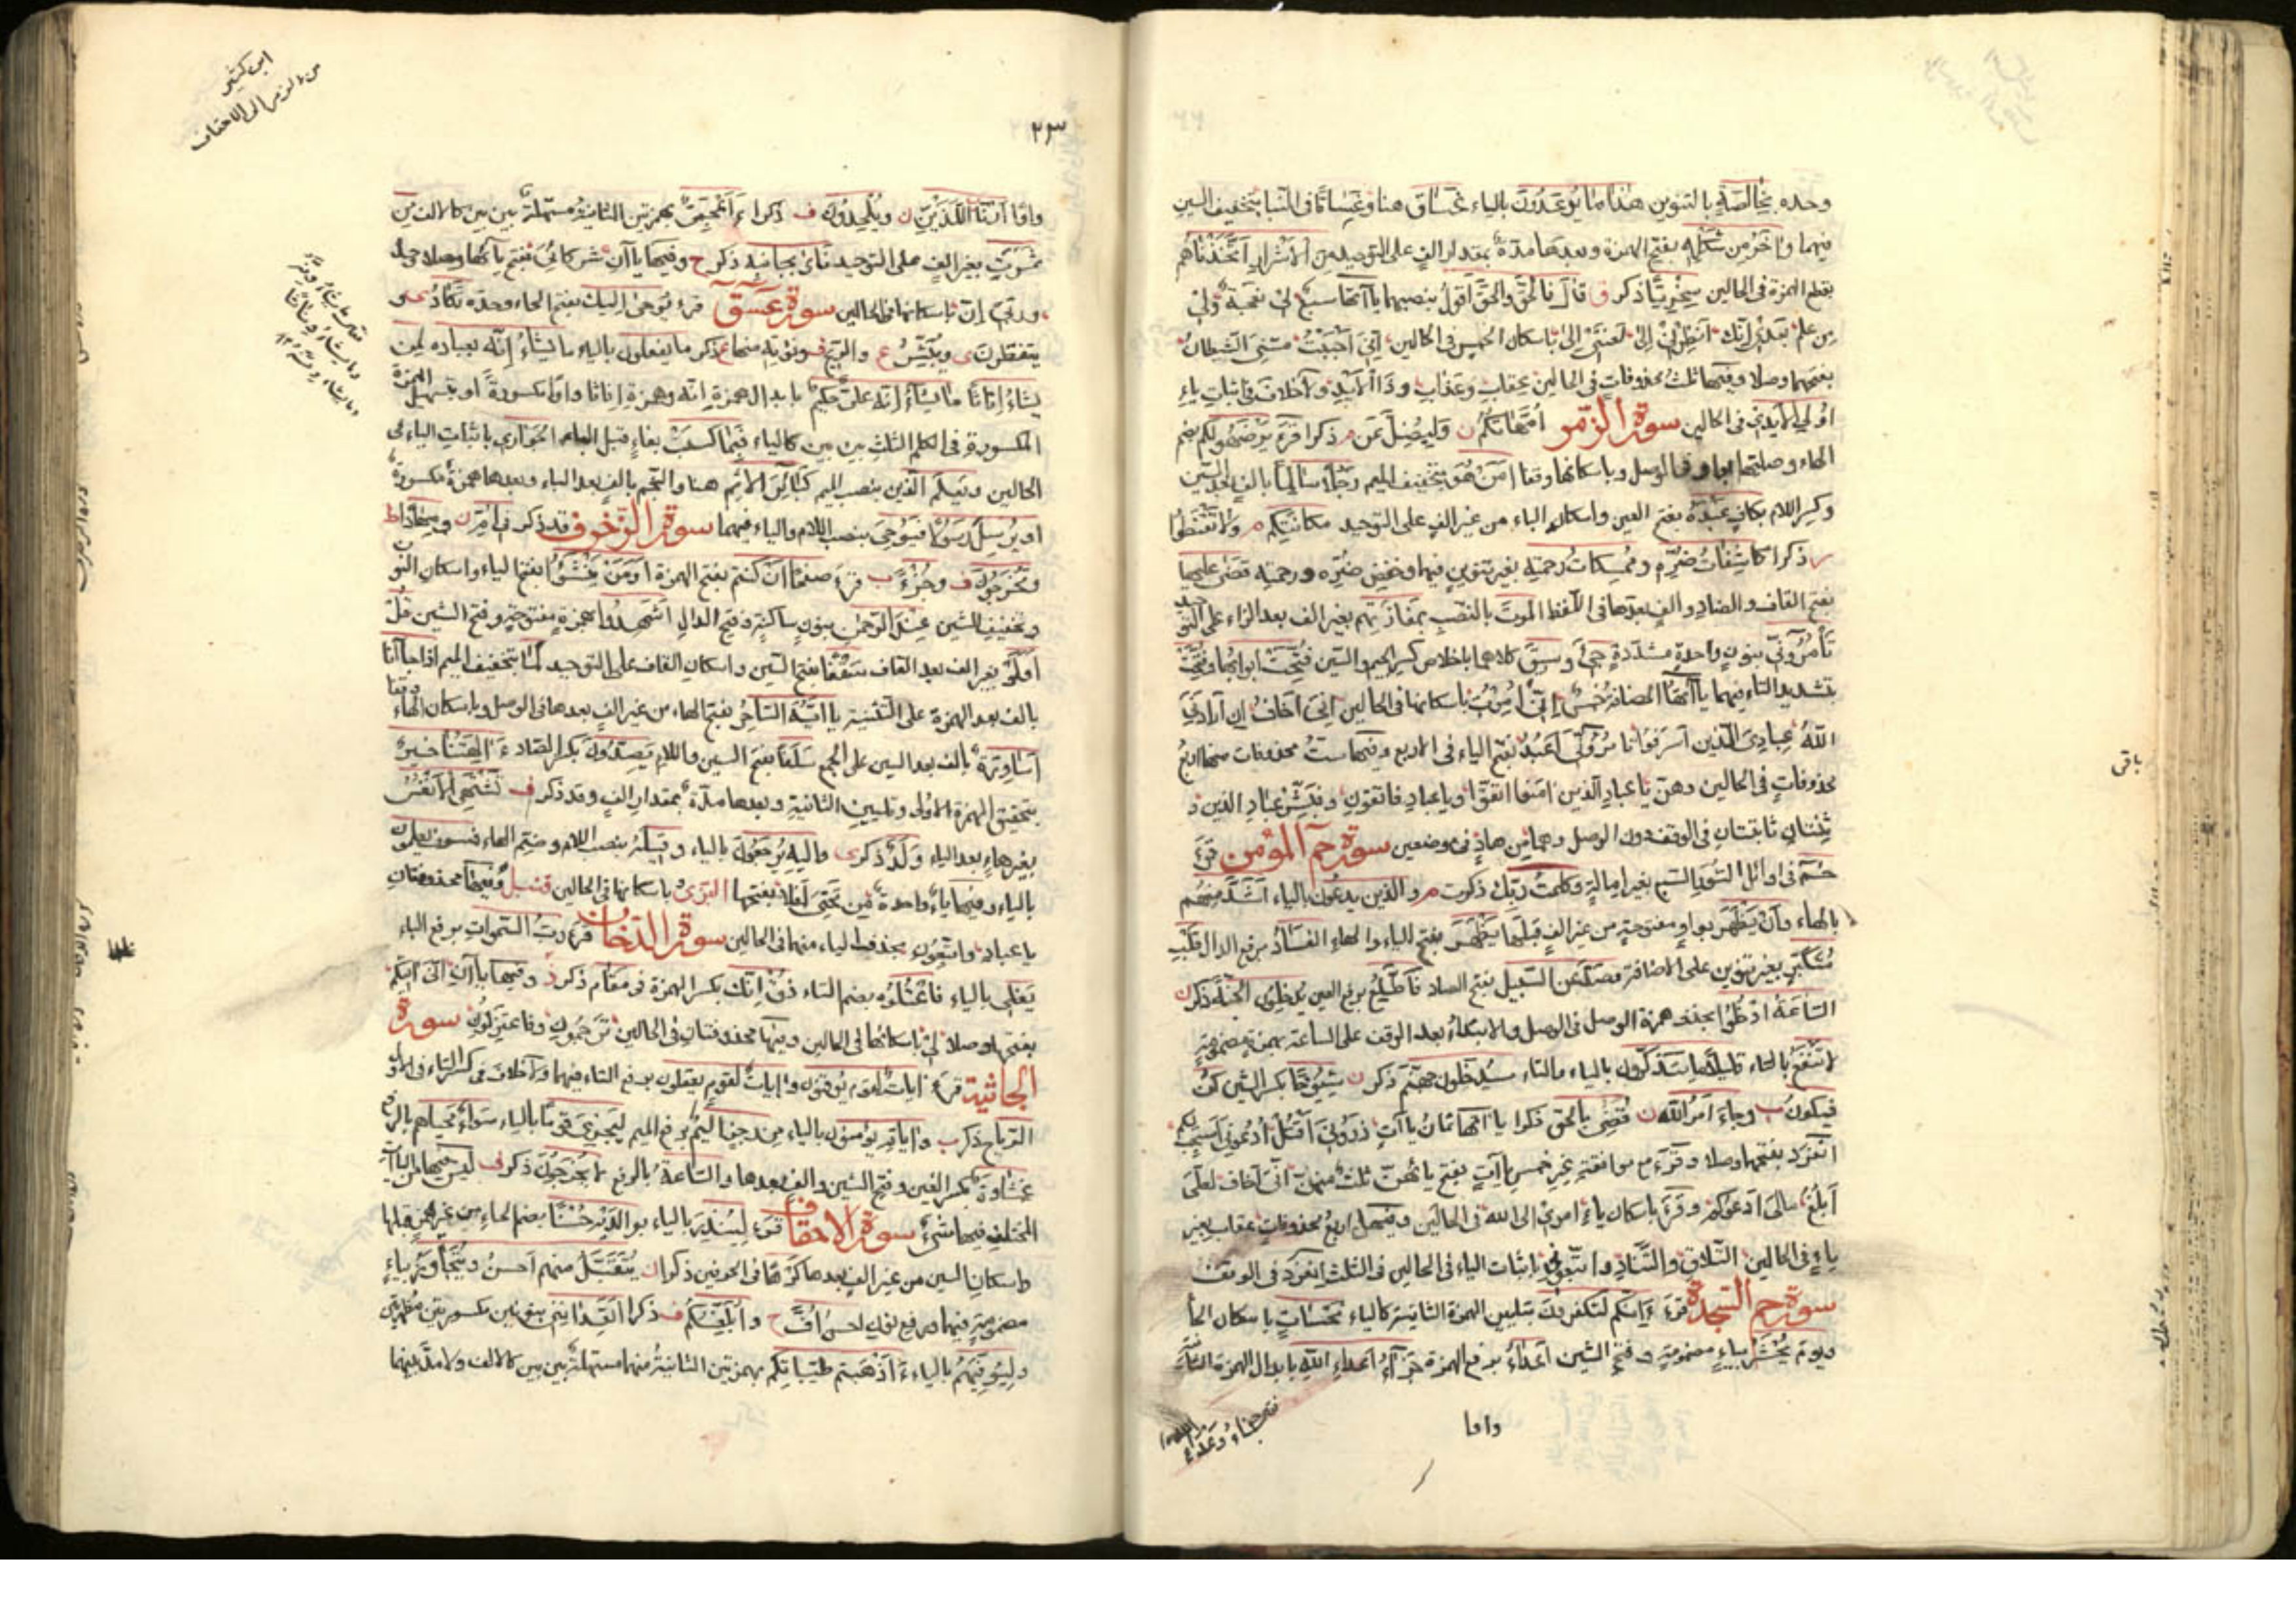 وحده بخالصة بالتنوين هذا ما يوعدون بالياء غساق هنا وغساقا في النبأ بتخفيف السين
فيهما وآخر من شكله بفتح الهمزة وبعدها مدة بمقدار الف على التوحيد من الاشرار اتخذناهم
بقطع الهمزة في الحالين سخريا ذكر ف قال فالحق والحق اقول بنصبهما ياآتها ست لي نعجة ولي
من علم بعدي انك انظرني الى لعنتي الى باسكان الخمس في الحالين اني احببت مسني الشيطان
بفتحهما وصلا وفيها ثلث محذوفات في الحالين عقاب وعذاب وذا الايد ولا خلاف في اثبات ياء
اولي الايدي في الحالين سورة الزمر امهاتكم ن وليضل عن م ذكرا قرء يرضهو لكم بضم
الهاء وصلتها بواو في الوصل وباسكانها وقفا امن هو بتخفيف الميم رجلا سالما بالف بعد السين
وكسر اللام بكاف عبده بفتح العين واسكان الباء من غير الف على التوحيد مكانتكم م ولا تقنطوا
ر ذكرا كاشفات ضره وممسكات رحمته بغير تنوين فيهما وخفض ضره ورحمته قضى عليها
بفتح القاف والضاد والف بعدها في اللفظ الموت بالنصب بمفازتهم بغير الف بعد الزاء على التوحيد
تأمروني بنون واحدة مشددة جيء وسيق كلاهما باخلاص كسر الجيم والسين فتحت ابوابها وفتحت
بتشديد التاء فيهما ياآتها المضافة خمس اني امرت باسكانها في الحالين اني اخاف ان ارادني
الله عبادي الذين اسرفوا تأمروني اعبد بفتح الياء في الاربع وفيها ست محذوفات منها اربع
محذوفات في الحالين وهن يا عباد الذين امنوا اتقوا ويا عباد فاتقون وفبشر عباد الذين و
ثنتان ثابتتان في الوقف دون الوصل وهما من هاد في موضعين سورة حم المؤمن قرء
حم في اوائل السور السبع بغير امالة وكلمت ربك ذكرت م والذين يدعون بالياء اشد منهم
بالهاء وان يظهر بواو مفتوحة من غير الف قبلها يظهر بفتح الياء والهاء الفساد برفع الدال قلب
متكبر بغير تنوين على الاضافة وصد عن السبيل بفتح الصاد فاطلع برفع العين يدخلون الجنة ذكر ن
الساعة ادخلوا بحذف همزة الوصل في الوصل والابتداء بعد الوقف على الساعة بهمزة مضمومة
لا تنفع بالتاء قليلا ما يتذكرون بالياء والتاء سيدخلون جهنم ذكر ن شيوخا بكسر الشين كن
فيكون ب وجاء امر الله ن قضي بالحق ذكرا ياآتها ثمان ياآت ذروني اقتل ادعوني استجب لكم
انفرد بفتحهما وصلا وقرء مع موافقة غير خمس ياآت بفتح ياآتهن ثلث منهن اني اخاف لعلي
ابلغ مالي ادعوكم وقرء باسكان ياء امري الى الله في الحالين وفيها اربع محذوفات عقاب بغير
ياء في الحالين التلاق والتناد واتبعوني باثبات الياء في الحالين في الثلث انفرد في الوقف
سورة حم السجدة قرء ءانكم لتكفرون بتليين الهمزة الثانية كالياء نحسات باسكان الحاء
ويوم يحشر بياء مضمومة وفتح الشين اعداء برفع الهمزة جزاء اعداء الله بابدال الهمزة الثانية
واوا
باقي
ابن كثير
من الزمر الى الاحقاف
٢٣
واوا ارنا اللذين ن ويلحدون ف ذكرا ءاعجمي بهمزتين الثانية مسهلة بين بين كالالف من
ثمرت بغير الف على التوحيد نأى بجانبه ذكر ح وفيها ياآن شركائي بفتح يائها وصلا
وربي ان باسكانها في الحالين سورة عسق قرء يوحى اليك بفتح الحاء وحده تكاد ى و
يتفطرن ى ويبشر ع والريح ف ونؤته منها ع ذكر ما يفعلون بالياء ما يشاء انه بعباده لمن
يشاء اناثا ما يشاء انه علي حكيم بابدال همزة انه وهمزة اناثا واوا مكسورة او بتسهيل الهمزة
المكسورة في الكلم الثلث بين بين كالياء فبما كسبت بفاء قبل الباء الجواري باثبات الياء في
الحالين ويعلم الذين بنصب الميم كبائر الاثم هنا والنجم بالف بعد الباء وبعدها همزة مكسورة
او يرسل رسولا فيوحي بنصب اللام والياء فيهما سورة الزخرف قد ذكر في ام ن ومهادا ط
وتخرجون ف وجزءا ب قرء صفحا ان كنتم بفتح الهمزة اومن ينشؤا بفتح الياء واسكان النون
وتخفيف الشين عند الرحمن بنون ساكنة وفتح الدال اشهدوا بهمزة مفتوحة وفتح الشين قل
اولو بغير الف بعد القاف سقفا بفتح السين واسكان القاف على التوحيد لما بتخفيف الميم اذا جاآنا
بالف بعد الهمزة على التثنية يا ايه الساحر بفتح الهاء من غير الف بعدها في الوصل وباسكان الهاء وقفا
اساورة بالف بعد السين على الجمع سلفا بفتح السين واللام يصدون بكسر الصاد ءآلهتنا خير
بتحقيق الهمزة الاولى وتليين الثانية وبعدها مدة بمقدار الف وقد ذكر ف تشتهي الانفس
بغير هاء بعد الياء ولد ذكر ى واليه يرجعون بالياء وقيله بنصب اللام وضم الهاء فسوف يعلمون
بالياء وفيها ياء واحدة من تحتي افلا بفتحها البزي باسكانها في الحالين قنبل وفيها محذوفتان
يا عباد واتبعون بحذف الياء منهما في الحالين سورة الدخان قرء رب السموات برفع الباء
يغلي بالياء فاعتلوه بضم التاء ذق انك بكسر الهمزة في مقام ذكر ذ وفيها ياآن اني آتيكم
بفتحها وصلا لي باسكانها في الحالين وفيها محذوفتان في الحالين ترجمون وفاعتزلون سورة
الجاثية قرء آيات لقوم يوقنون وآيات لقوم يعقلون برفع التاء فيهما ولا خلاف في كسر التاء في الاول
الرياح ذكر ب وآياته يؤمنون بالياء من رجز اليم برفع الميم ليجزي قوما بالياء سواء محياهم بالرفع
غشاوة بكسر الغين وفتح الشين والف بعدها والساعة بالرفع لا يخرجون ذكر ف ليس فيها من الياآت
المختلف فيها شيء سورة الاحقاف قرء لينذر بالياء بوالديه حسنا بضم الحاء من غير همز قبلها
واسكان السين من غير الف بعدها كرها في الحرفين ذكرا ن يتقبل منهم احسن ويتجاوز بياء
مضمومة فيهما ورفع نون احسن اف ح وابلغكم ف ذكرا اتعدانني بنونين مكسورتين
وليوفيهم بالياء ءاذهبتم طيباتكم بهمزتين الثانية منهما مسهلة بين بين كالالف ولا مد بينهما